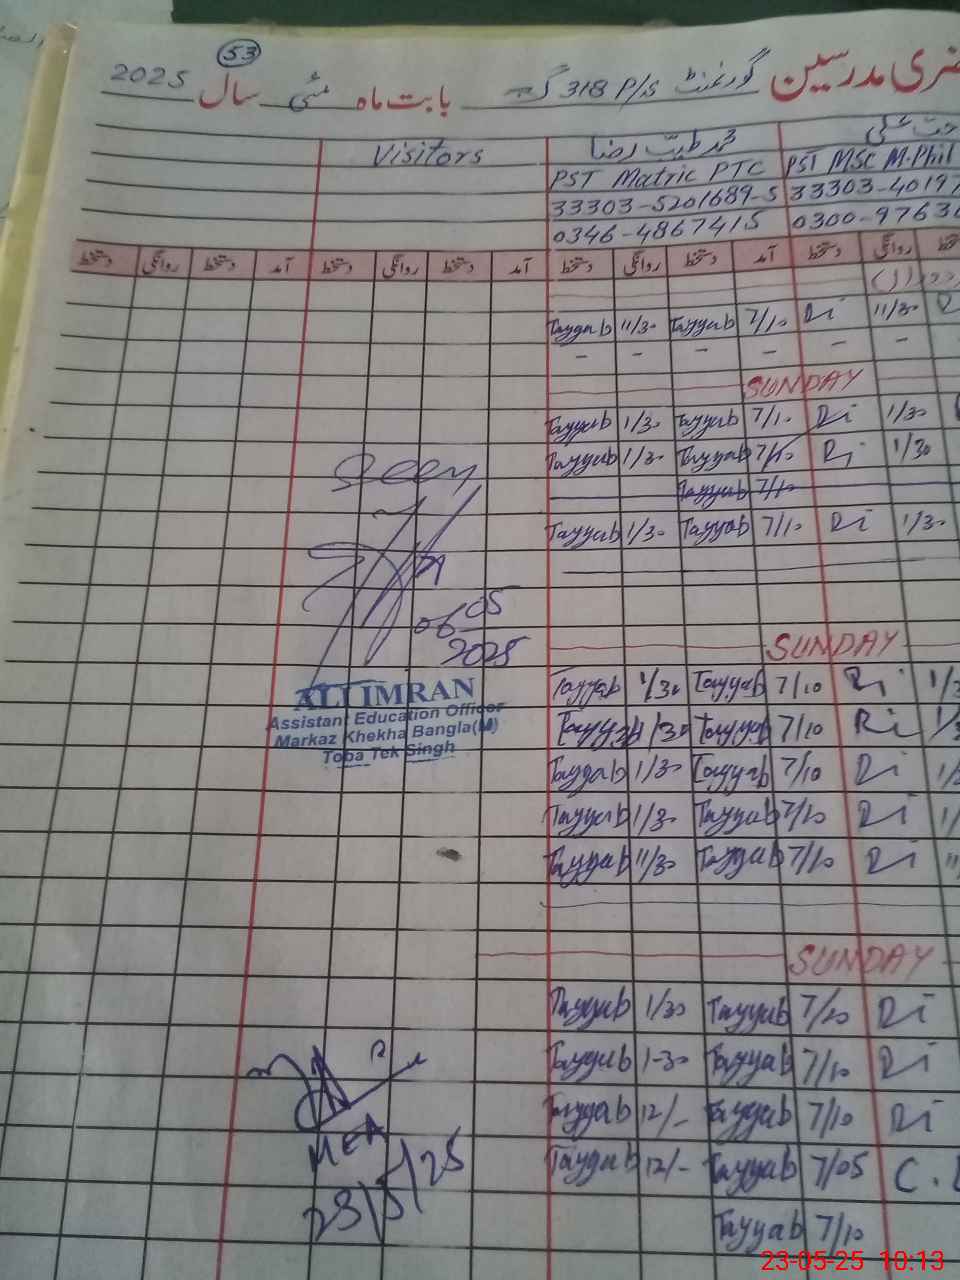 53
حاضری مدرسین گورنمنٹ 318 P/S گ ب بابت ماہ مئی سال 2025
Visitors محمد طیب رضا
PST Matric PTC PST MSC M.Phil
33303-5201689-5 33303-4019
0346-4867415 0300-9763
آمد دستخط روانگی دستخط آمد دستخط روانگی دستخط آمد دستخط روانگی دستخط
Tayyab 11/30 Tayyab 7/10 Ri 11/30
- - - - - -
SUNDAY
Tayyab 1/30 Tayyab 7/10 Ri 1/30
Tayyab 1/30 Tayyab 7/10 Ri 1/30
Seen
Tayyab 7/10
Tayyab 1/30 Tayyab 7/10 Ri 1/30
06/05
2025
SUNDAY
Tayyab 1/30 Tayyab 7/10 Ri
ALI IMRAN
Assistant Education Officer
Markaz Khekha Bangla(M)
Toba Tek Singh
Tayyab 1/30 Tayyab 7/10 Ri
Tayyab 1/30 Tayyab 7/10 Ri
Tayyab 1/30 Tayyab 7/10 Ri
Tayyab 11/30 Tayyab 7/10 Ri
SUNDAY
Tayyab 1/30 Tayyab 7/10 Ri
Tayyab 1-30 Tayyab 7/10 Ri
Tayyab 12/- Tayyab 7/10 Ri
MEA
Tayyab 12/- Tayyab 7/05 C.
23/5/25
Tayyab 7/10
23-05-25 10:13